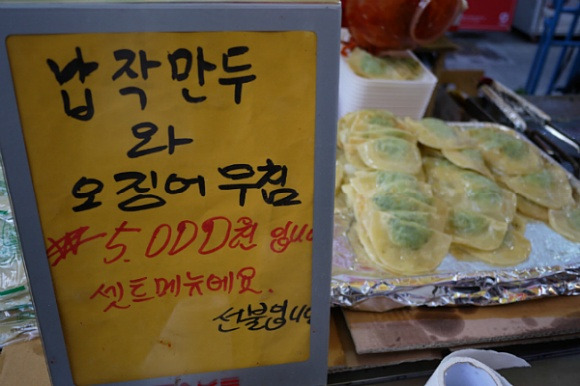 납작만두
와
오징어우침
※5.000원 입니다
셋트메뉴에요.
선불입니다